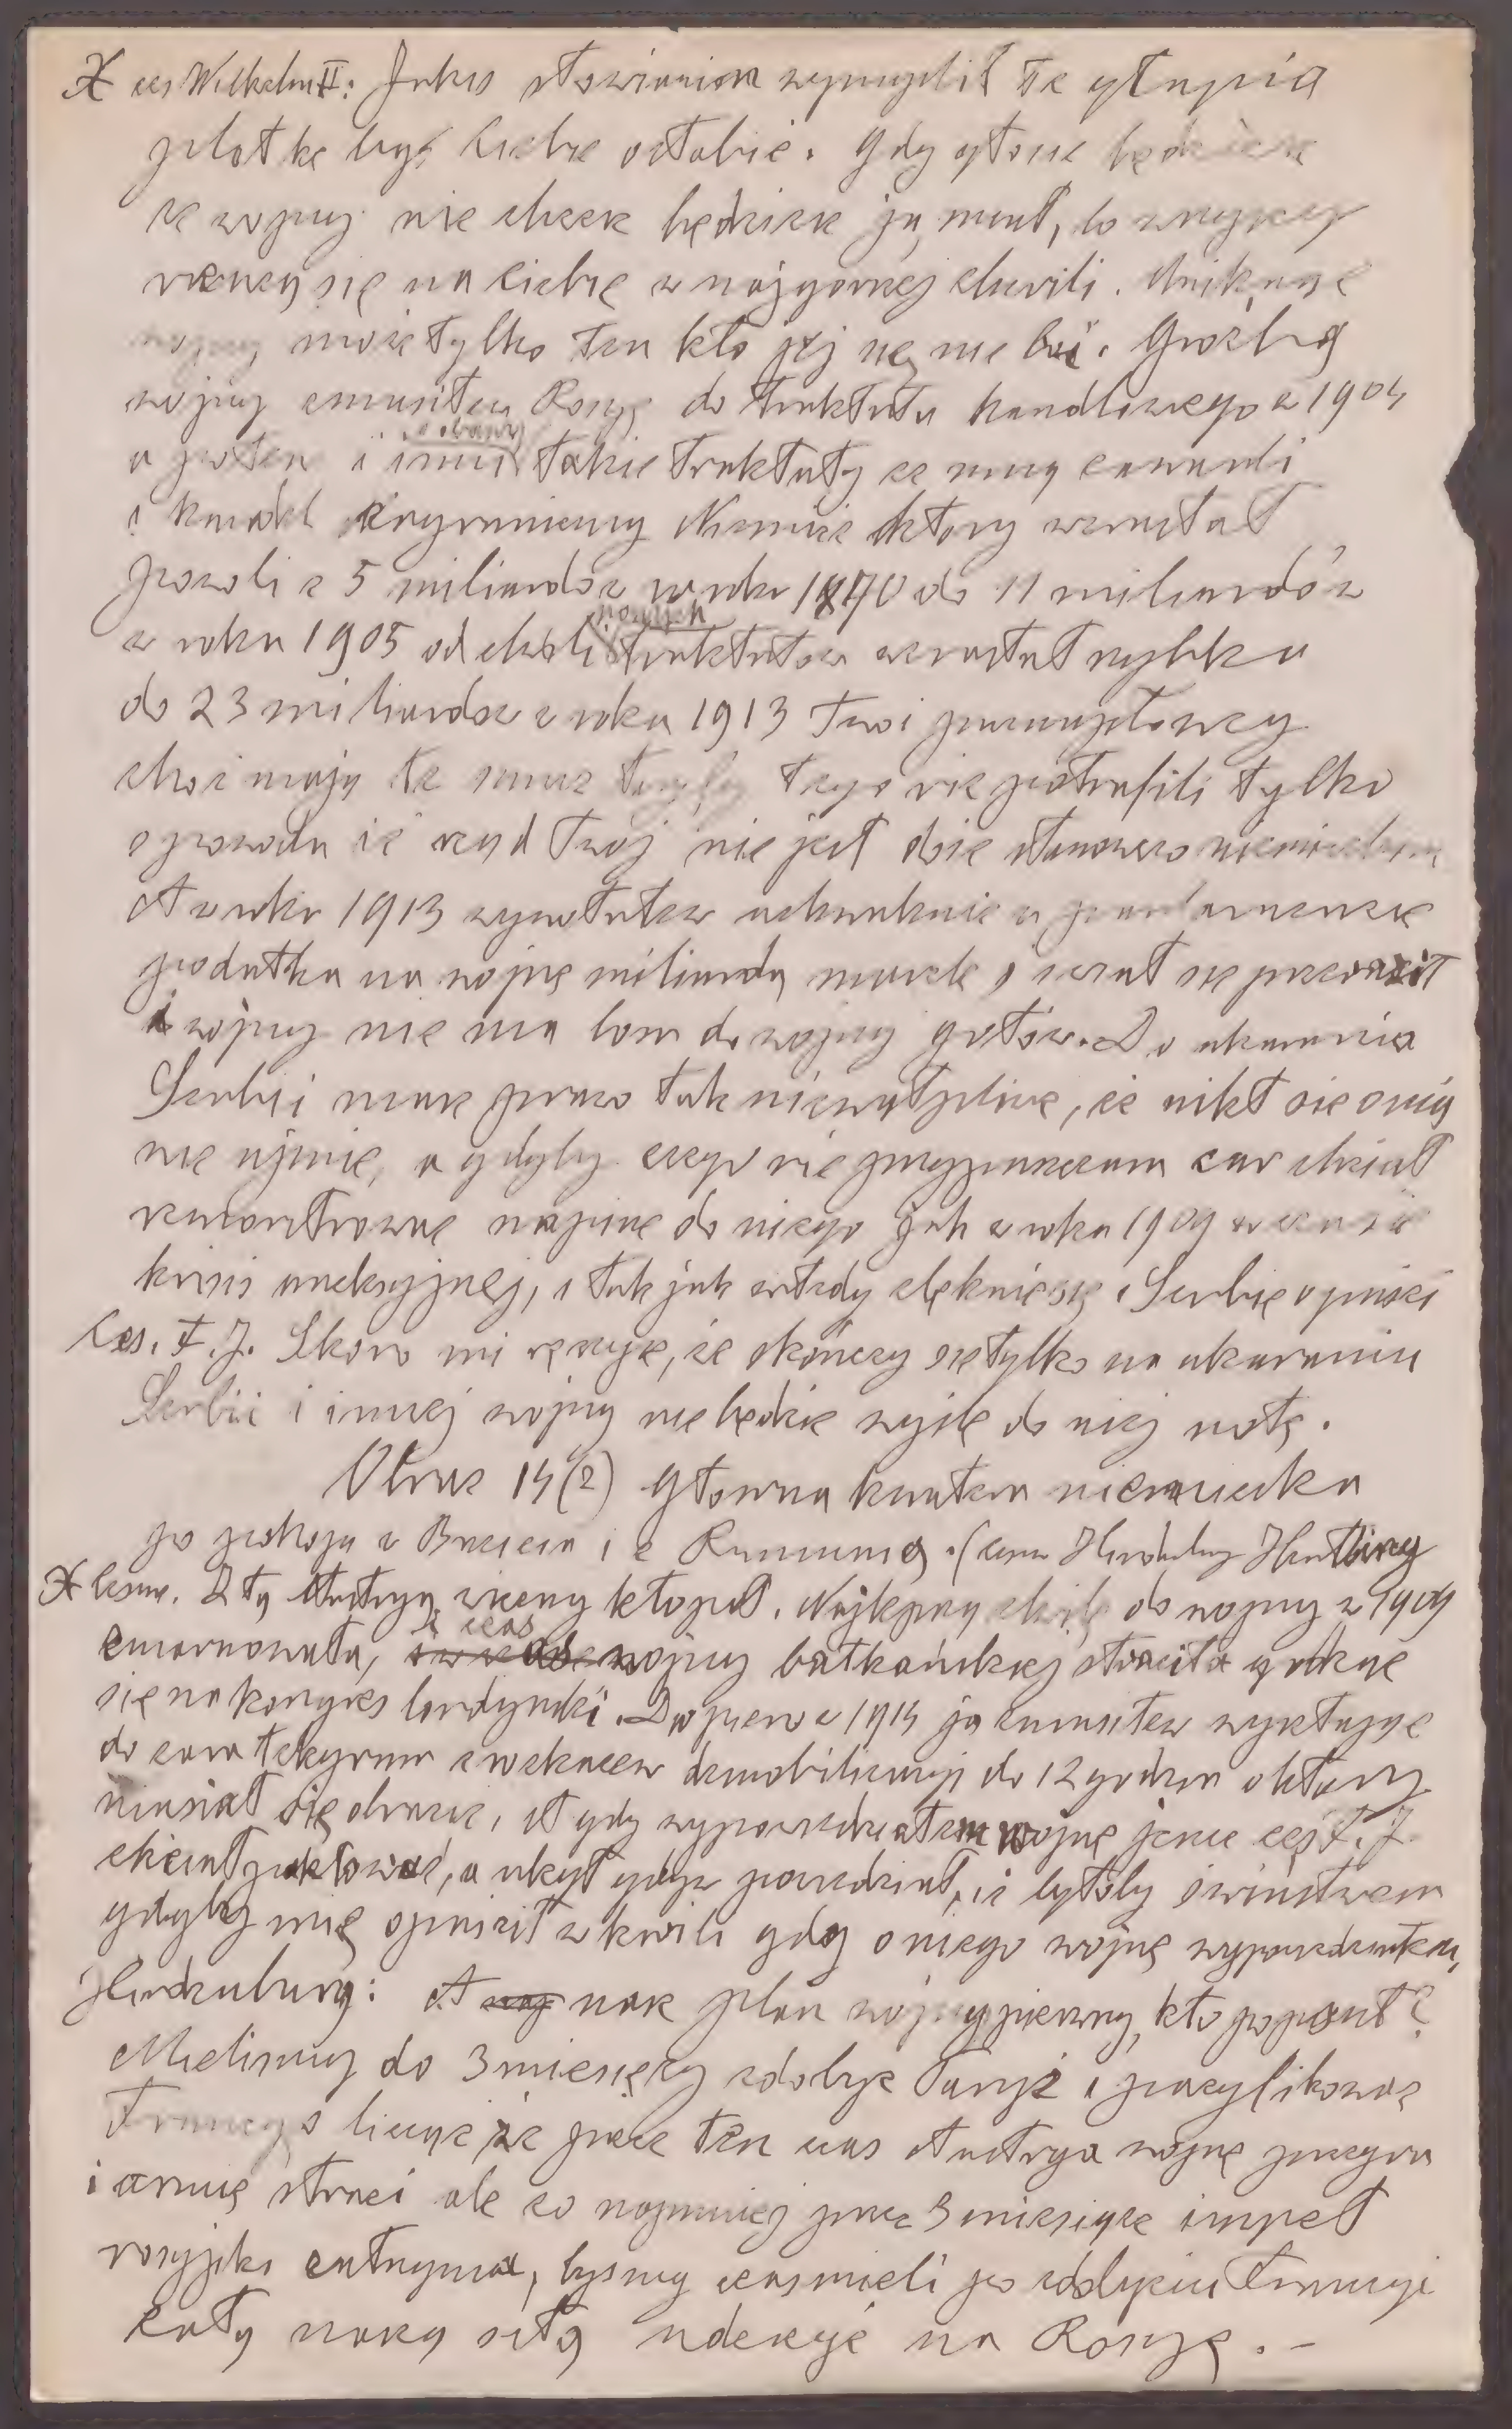 X ces Wilhelm II: Jakiś słowianin wymyślił tę głupią
plotkę by Ciebie osłabić. Gdy głosić będziesz
że wojny nie chcesz będziesz ją miał, bo wszyscy
rzucą się na Ciebie w najgorszej chwili. Uniknąć
wojny może tylko ten kto jej się nie boi. Groźbą
wojny zmusiłem Rosyę do traktatu handlowego w 1904
a potem i inni z obawy takie traktaty ze mną zawarli
i handel zagraniczny Niemiec który wzrastał
powoli z 5 miliardów w roku 1870 do 11 miliardów
w roku 1905 od chwili nowych traktatów wzrastał szybko
do 23 miliardów w roku 1913 Twoi przemysłowcy
choć mają te same taryfy tego nie potrafili tylko
z powodu że rząd Twój nie jest dość stanowczo niemieckim
A w roku 1913 wywołałem uchwalenie w parlamencie
podatku na wojnę miliarda marek i świat się przeraził
i wojny nie ma bom do wojny gotów. Do ukarania
Serbii masz prawo tak niewątpliwe, że nikt się o nią
nie ujmie, a gdyby czego nie przypuszczam car chciał
remonstrować napiszę do niego jak w roku 1909 w czasie
krisis aneksyjnej, i tak jak wtedy zlęknie się i Serbię opuści
Ces. F. J. Skoro mi ręczysz, że skończy się tylko na ukaraniu
Serbii i innej wojny nie będzie wyślę do niej notę.
Obraz 14 (2) Głowna kwatera niemiecka
po pokoju w Brześciu i z Rumunią. (cesarz Hindenburg Hertling
X Cesarz. Z tą Austryą wieczny kłopot. Najlepszą chwilę do wojny w 1909
zmarnowała, czas wojny bałkańskiej straciła godząc
się na kongres londyński. Dopiero w 1914 ja zmusiłem wysyłając
do cara telegram z wezwaniem demobilizacyi do 12 godzin o który
musiał się obrazić, A gdy wypowiedziałem wojnę jeszcze ces F. J.
chciał paktować, a uległ gdym powiedział, iż byłoby świństwem
gdyby mię opuścił w chwili gdy o niego wojnę wypowiedziałem,
Hindenburg: A nasz plan wojny pierwszy, kto go popsuł?
Mieliśmy do 3 miesięcy zdobyć Paryż i pacyfikować
Francyę licząc że przez ten czas Austrya wojnę przegra
i armię straci ale co najmniej przez 3 miesiące impet
rosyjski zatrzyma, byśmy czas mieli po zdobyciu Francyi
całą naszą siłą uderzyć na Rosyę. –